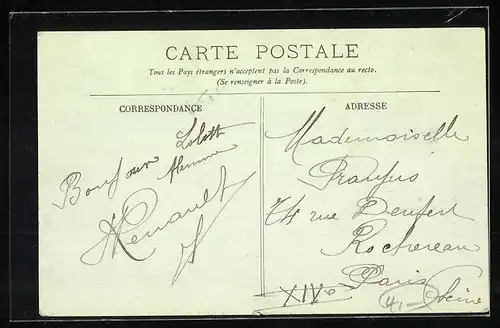 CARTE POSTALE
Tous les Pays étrangers n'acceptent pas la Correspondance au recto.
(Se renseigner à la Poste).
CORRESPONDANCE
Bonjour
ADRESSE
Mademoiselle
74 rue Denfert
Rochereau
Paris
XIVe
Seine